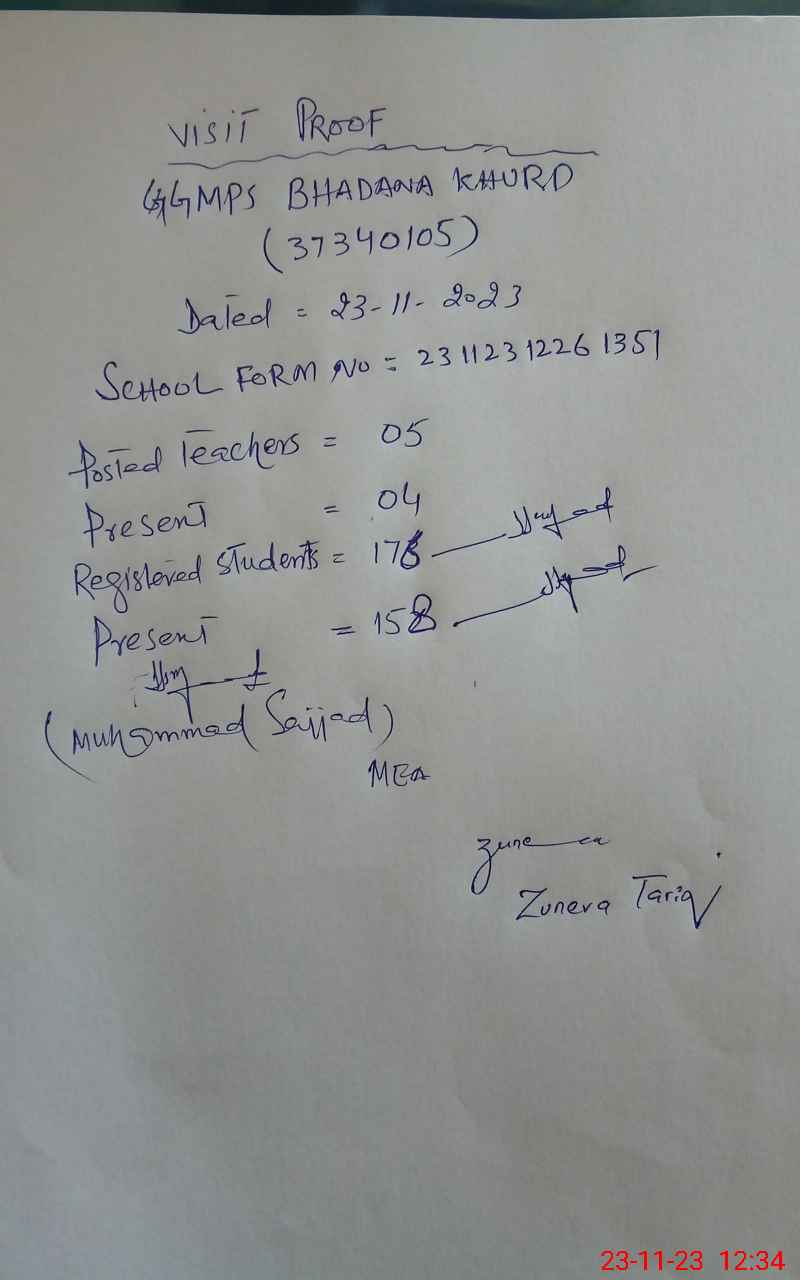 VISIT PROOF
GGMPS BHADANA KHURD
(37340105)
Dated = 23-11-2023
SCHOOL FORM NO = 23112312261351
Posted Teachers = 05
Present = 04
Registered students =
Present = 158
(Muhammad Sajjad)
MEA
Zuneva Tariq
23-11-23 12:34